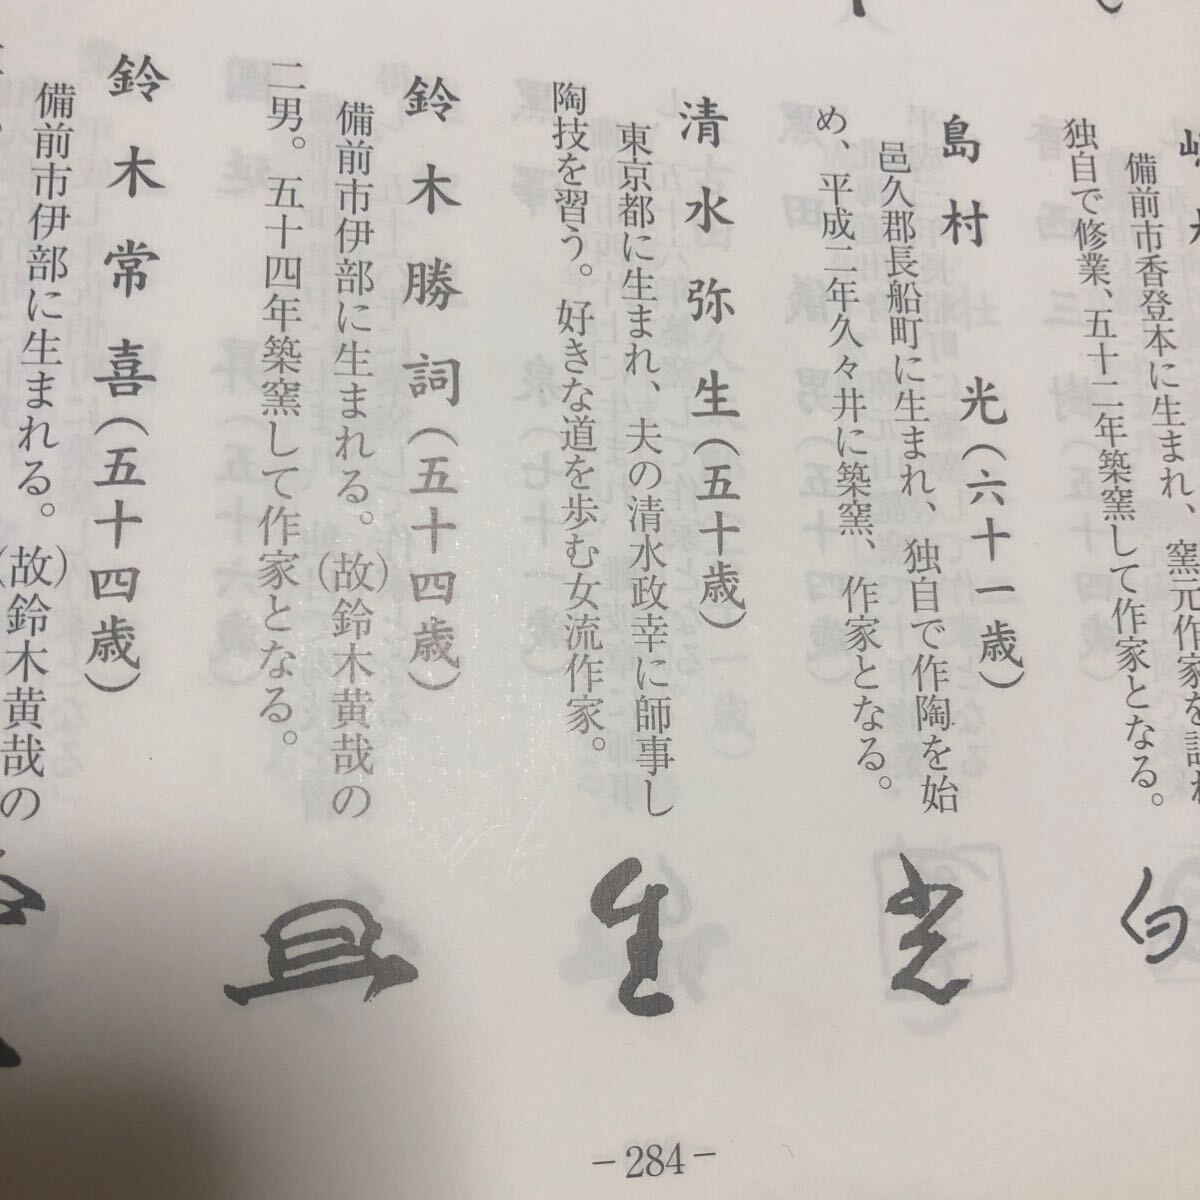 備前市香登本に生まれ、窯元作家を
独自で修業、五十二年築窯して作家となる。
島村　光（六十一歳）
邑久郡長船町に生まれ、独自で作陶を始
め、平成二年久々井に築窯、作家となる。
光
清水弥生（五十歳）
東京都に生まれ、夫の清水政幸に師事し
陶技を習う。好きな道を歩む女流作家。
生
鈴木勝詞（五十四歳）
備前市伊部に生まれる。（故）鈴木黄哉の
二男。五十四年築窯して作家となる。
鈴木常喜（五十四歳）
備前市伊部に生まれる。（故）鈴木黄哉の
－284－